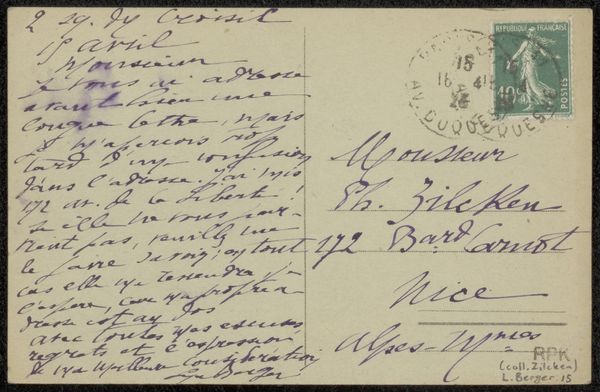 2 sq. du Croisic
15 avril
Monsieur
Je vous ai adressé
avant hier une
longue lettre, mais
je m'aperçois trop
tard d'une confusion
dans l'adresse. j'ai mis
172 av. de la Liberté!
si elle ne vous par-
vient pas, veuillez me
le faire savoir; en tout
cas elle me reviendra j'
l'espère, car ma propre a-
dresse est au dos
avec toutes mes excuses,
regrets et l'expression
de ma meilleure considération.
Berger
RÉPUBLIQUE FRANÇAISE
10c
POSTES
15
16
4
26
AV. DUQUESNE
Monsieur
Ph. Zilcken
172 Bard Carnot
Nice
Alpes-Mmes
RPK
(coll. Zilcken)
L. Berger. 15